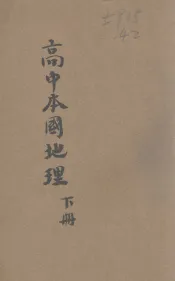 高中本國地理
下冊